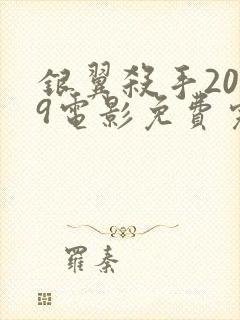 銀翼殺手20
9電影免費
羅秦